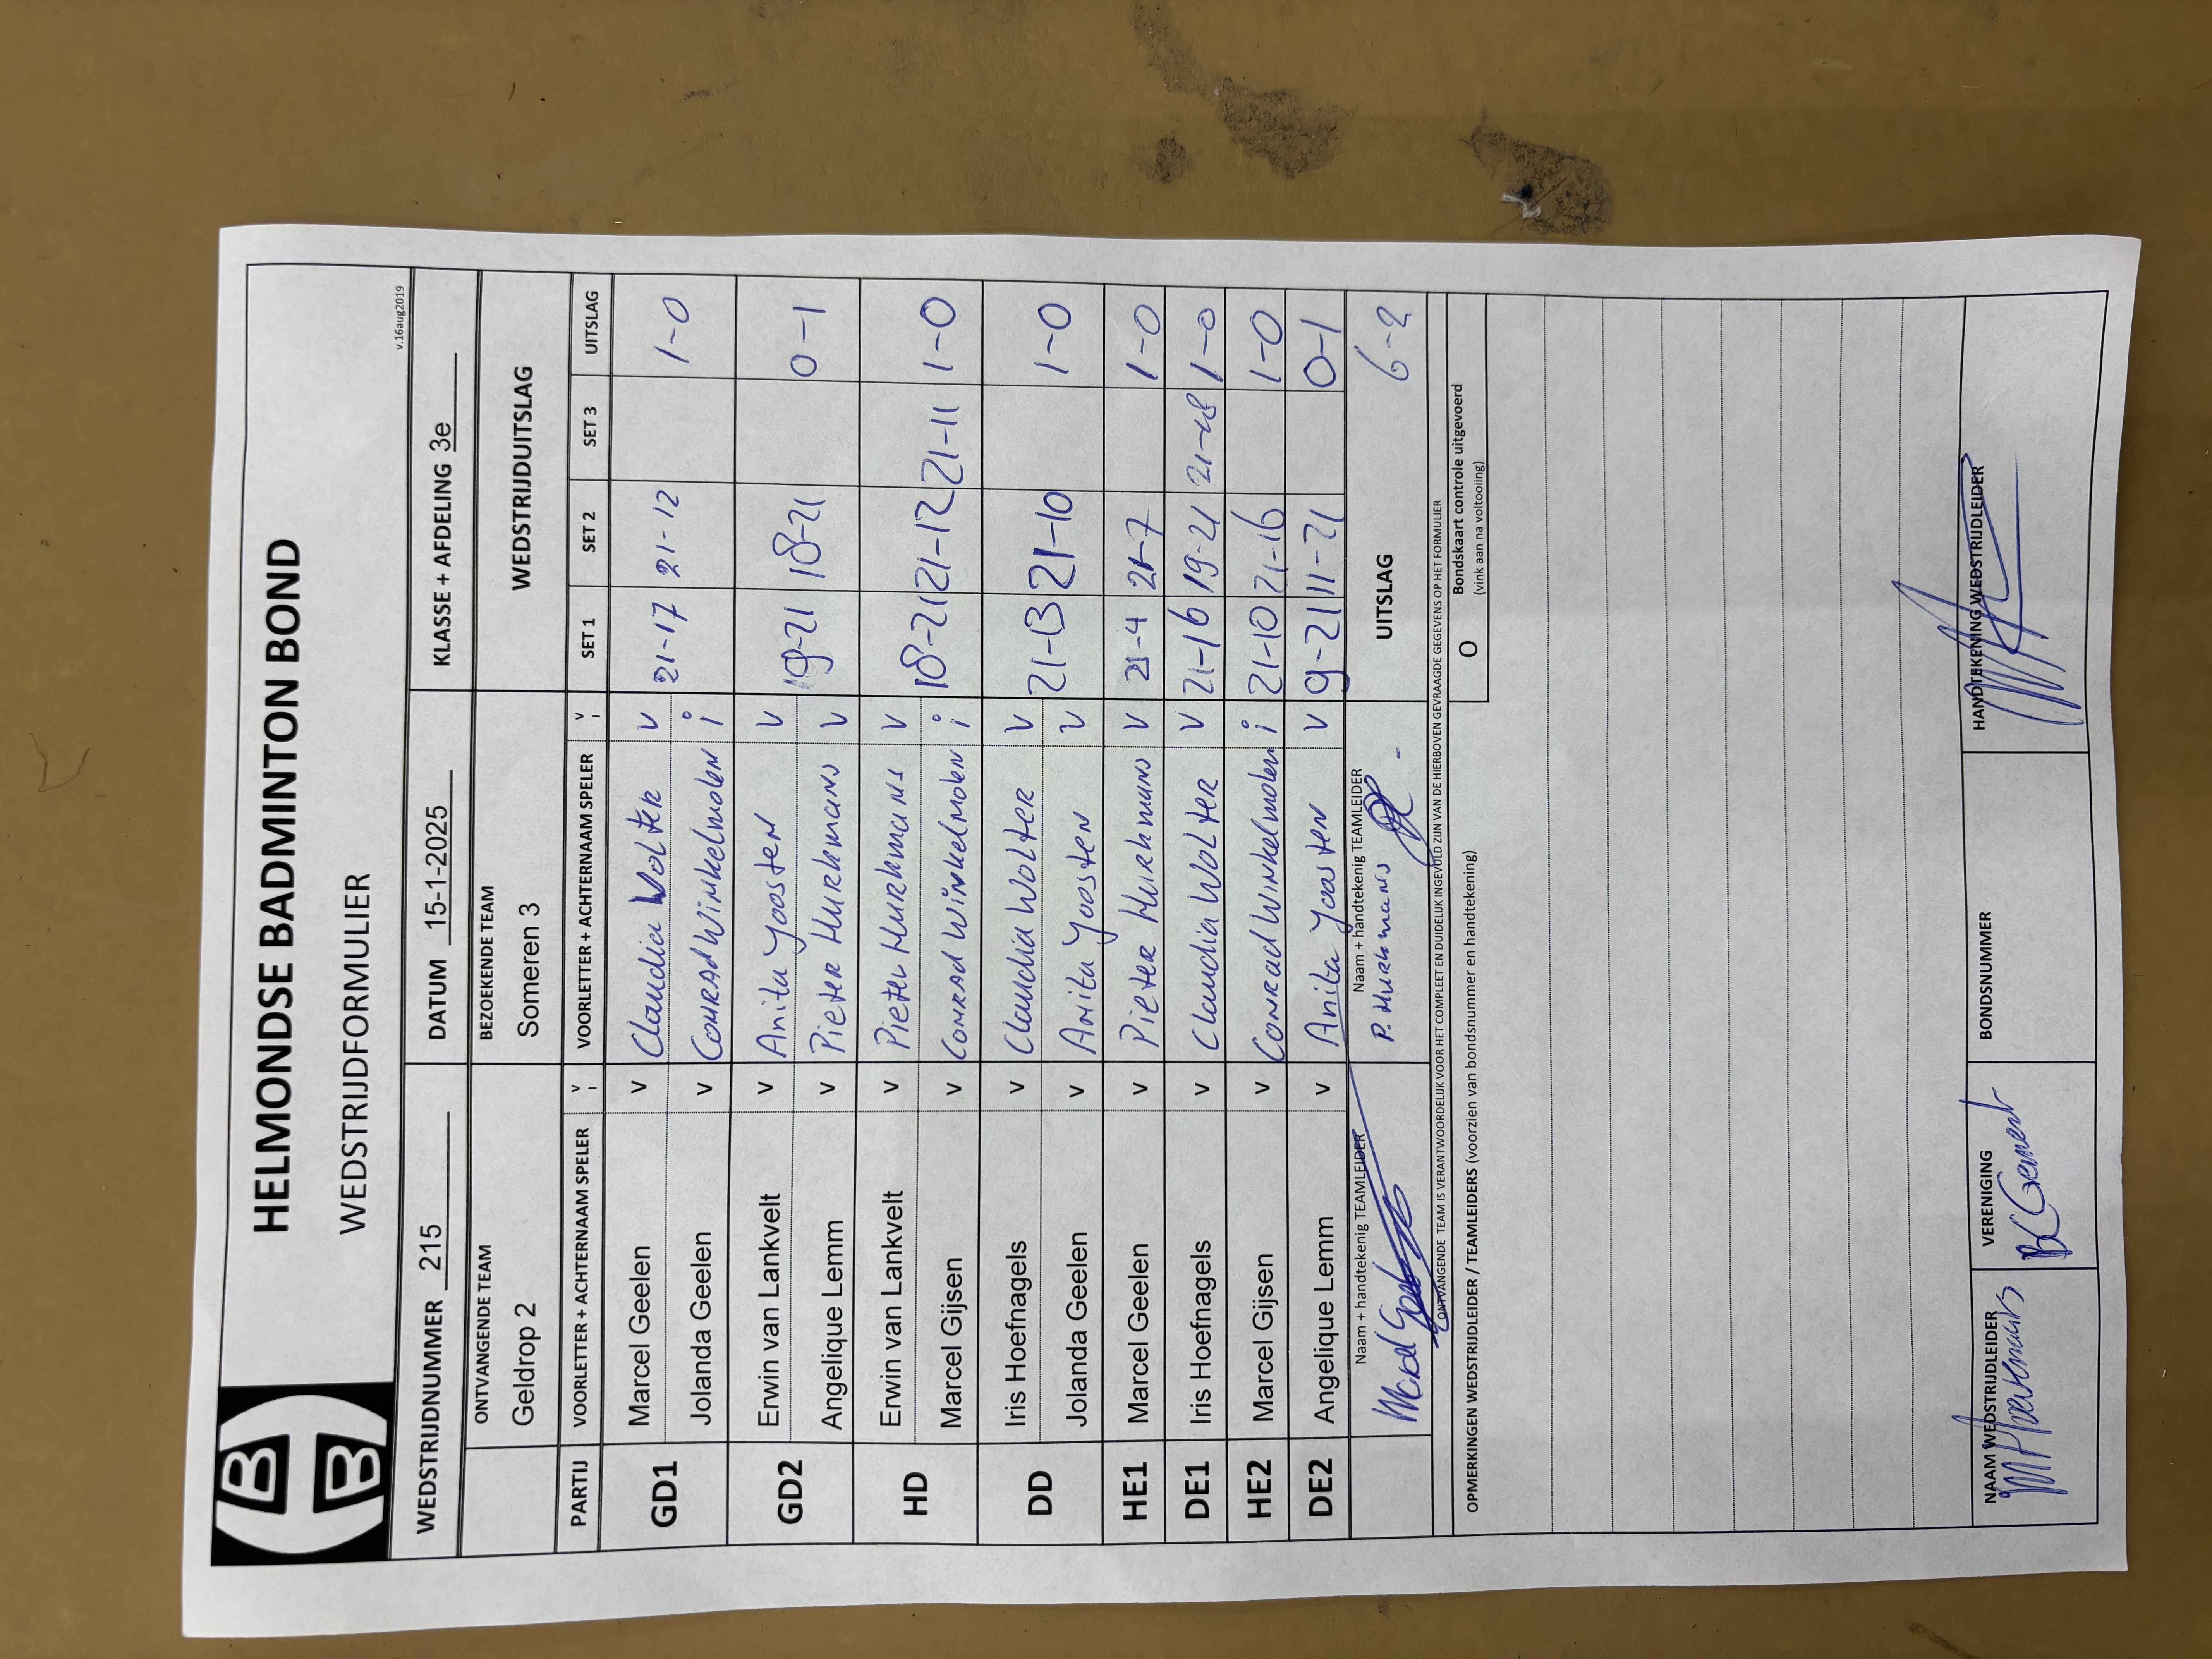 HELMONDSE BADMINTON BOND
WEDSTRIJDFORMULIER
v.16aug2019
WEDSTRIJDNUMMER 215 DATUM 15-1-2025 KLASSE + AFDELING 3e
ONTVANGENDE TEAM BEZOEKENDE TEAM WEDSTRIJDUITSLAG
Geldrop 2 Someren 3
PARTIJ VOORLETTER + ACHTERNAAM SPELER V I VOORLETTER + ACHTERNAAM SPELER V I SET 1 SET 2 SET 3 UITSLAG
GD1 Marcel Geelen v Claudia Wolter v 21-17 21-12 1-0
Jolanda Geelen v Conrad Winkelmolen i
GD2 Erwin van Lankvelt v Anita Joosten v 19-21 18-21 0-1
Angelique Lemm v Pieter Hurkmans v
HD Erwin van Lankvelt v Pieter Hurkmans v 18-21 21-12 21-11 1-0
Marcel Gijsen v Conrad Winkelmolen i
DD Iris Hoefnagels v Claudia Wolter v 21-13 21-10 1-0
Jolanda Geelen v Anita Joosten v
HE1 Marcel Geelen v Pieter Hurkmans v 21-4 21-7 1-0
DE1 Iris Hoefnagels v Claudia Wolter v 21-16 19-21 21-18 1-0
HE2 Marcel Gijsen v Conrad Winkelmolen i 21-10 21-16 1-0
DE2 Angelique Lemm v Anita Joosten v 9-21 11-21 0-1
Naam + handtekenig TEAMLEIDER Naam + handtekenig TEAMLEIDER UITSLAG 6-2
Marcel P. Hurkmans
ONTVANGENDE TEAM IS VERANTWOORDELIJK VOOR HET COMPLEET EN DUIDELIJK INGEVULD ZIJN VAN DE HIERBOVEN GEVRAAGDE GEGEVENS OP HET FORMULIER
OPMERKINGEN WEDSTRIJDLEIDER / TEAMLEIDERS (voorzien van bondsnummer en handtekening) O Bondskaart controle uitgevoerd
(vink aan na voltooiing)
NAAM WEDSTRIJDLEIDER VERENIGING BONDSNUMMER HANDTEKENING WEDSTRIJDLEIDER
BC Gemert